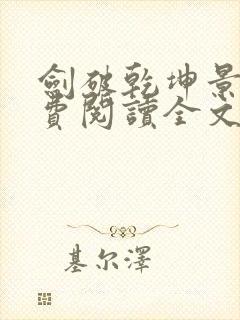 劍破乾坤景
費閱讀全文
基尔澤